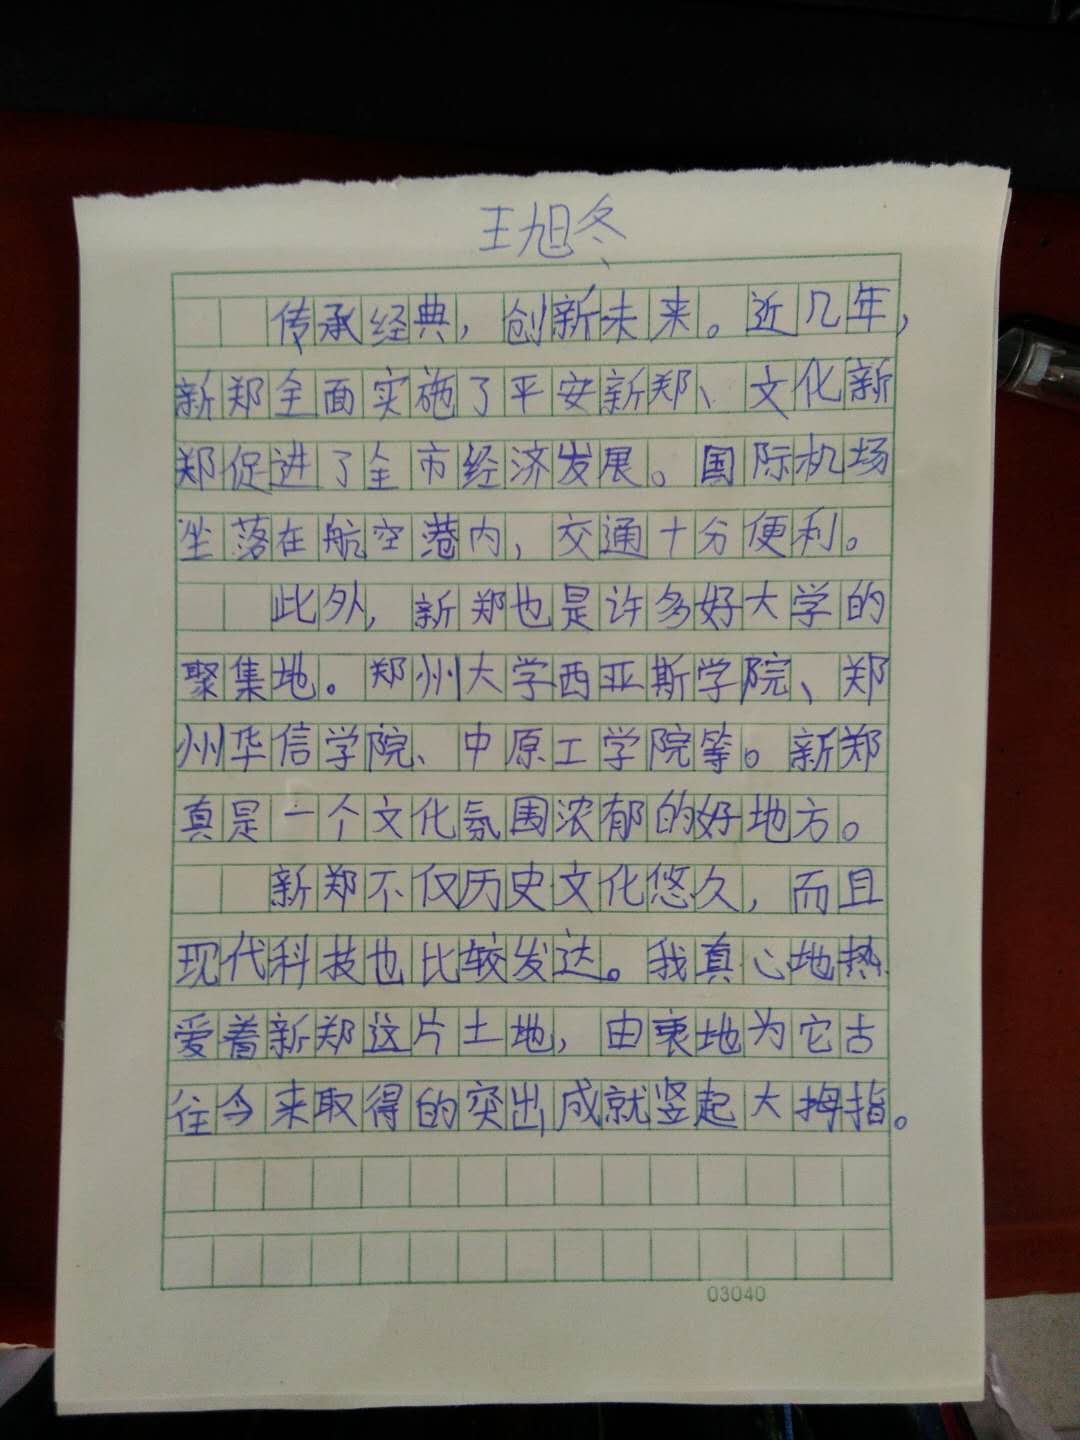 王旭冬
传承经典，创新未来。近几年，
新郑全面实施了平安新郑、文化新
郑促进了全市经济发展。国际机场
坐落在航空港内，交通十分便利。
此外，新郑也是许多好大学的
聚集地。郑州大学西亚斯学院、郑
州华信学院、中原工学院等。新郑
真是一个文化氛围浓郁的好地方。
新郑不仅历史文化悠久，而且
现代科技也比较发达。我真心地热
爱着新郑这片土地，由衷地为它古
往今来取得的突出成就竖起大拇指。
03040